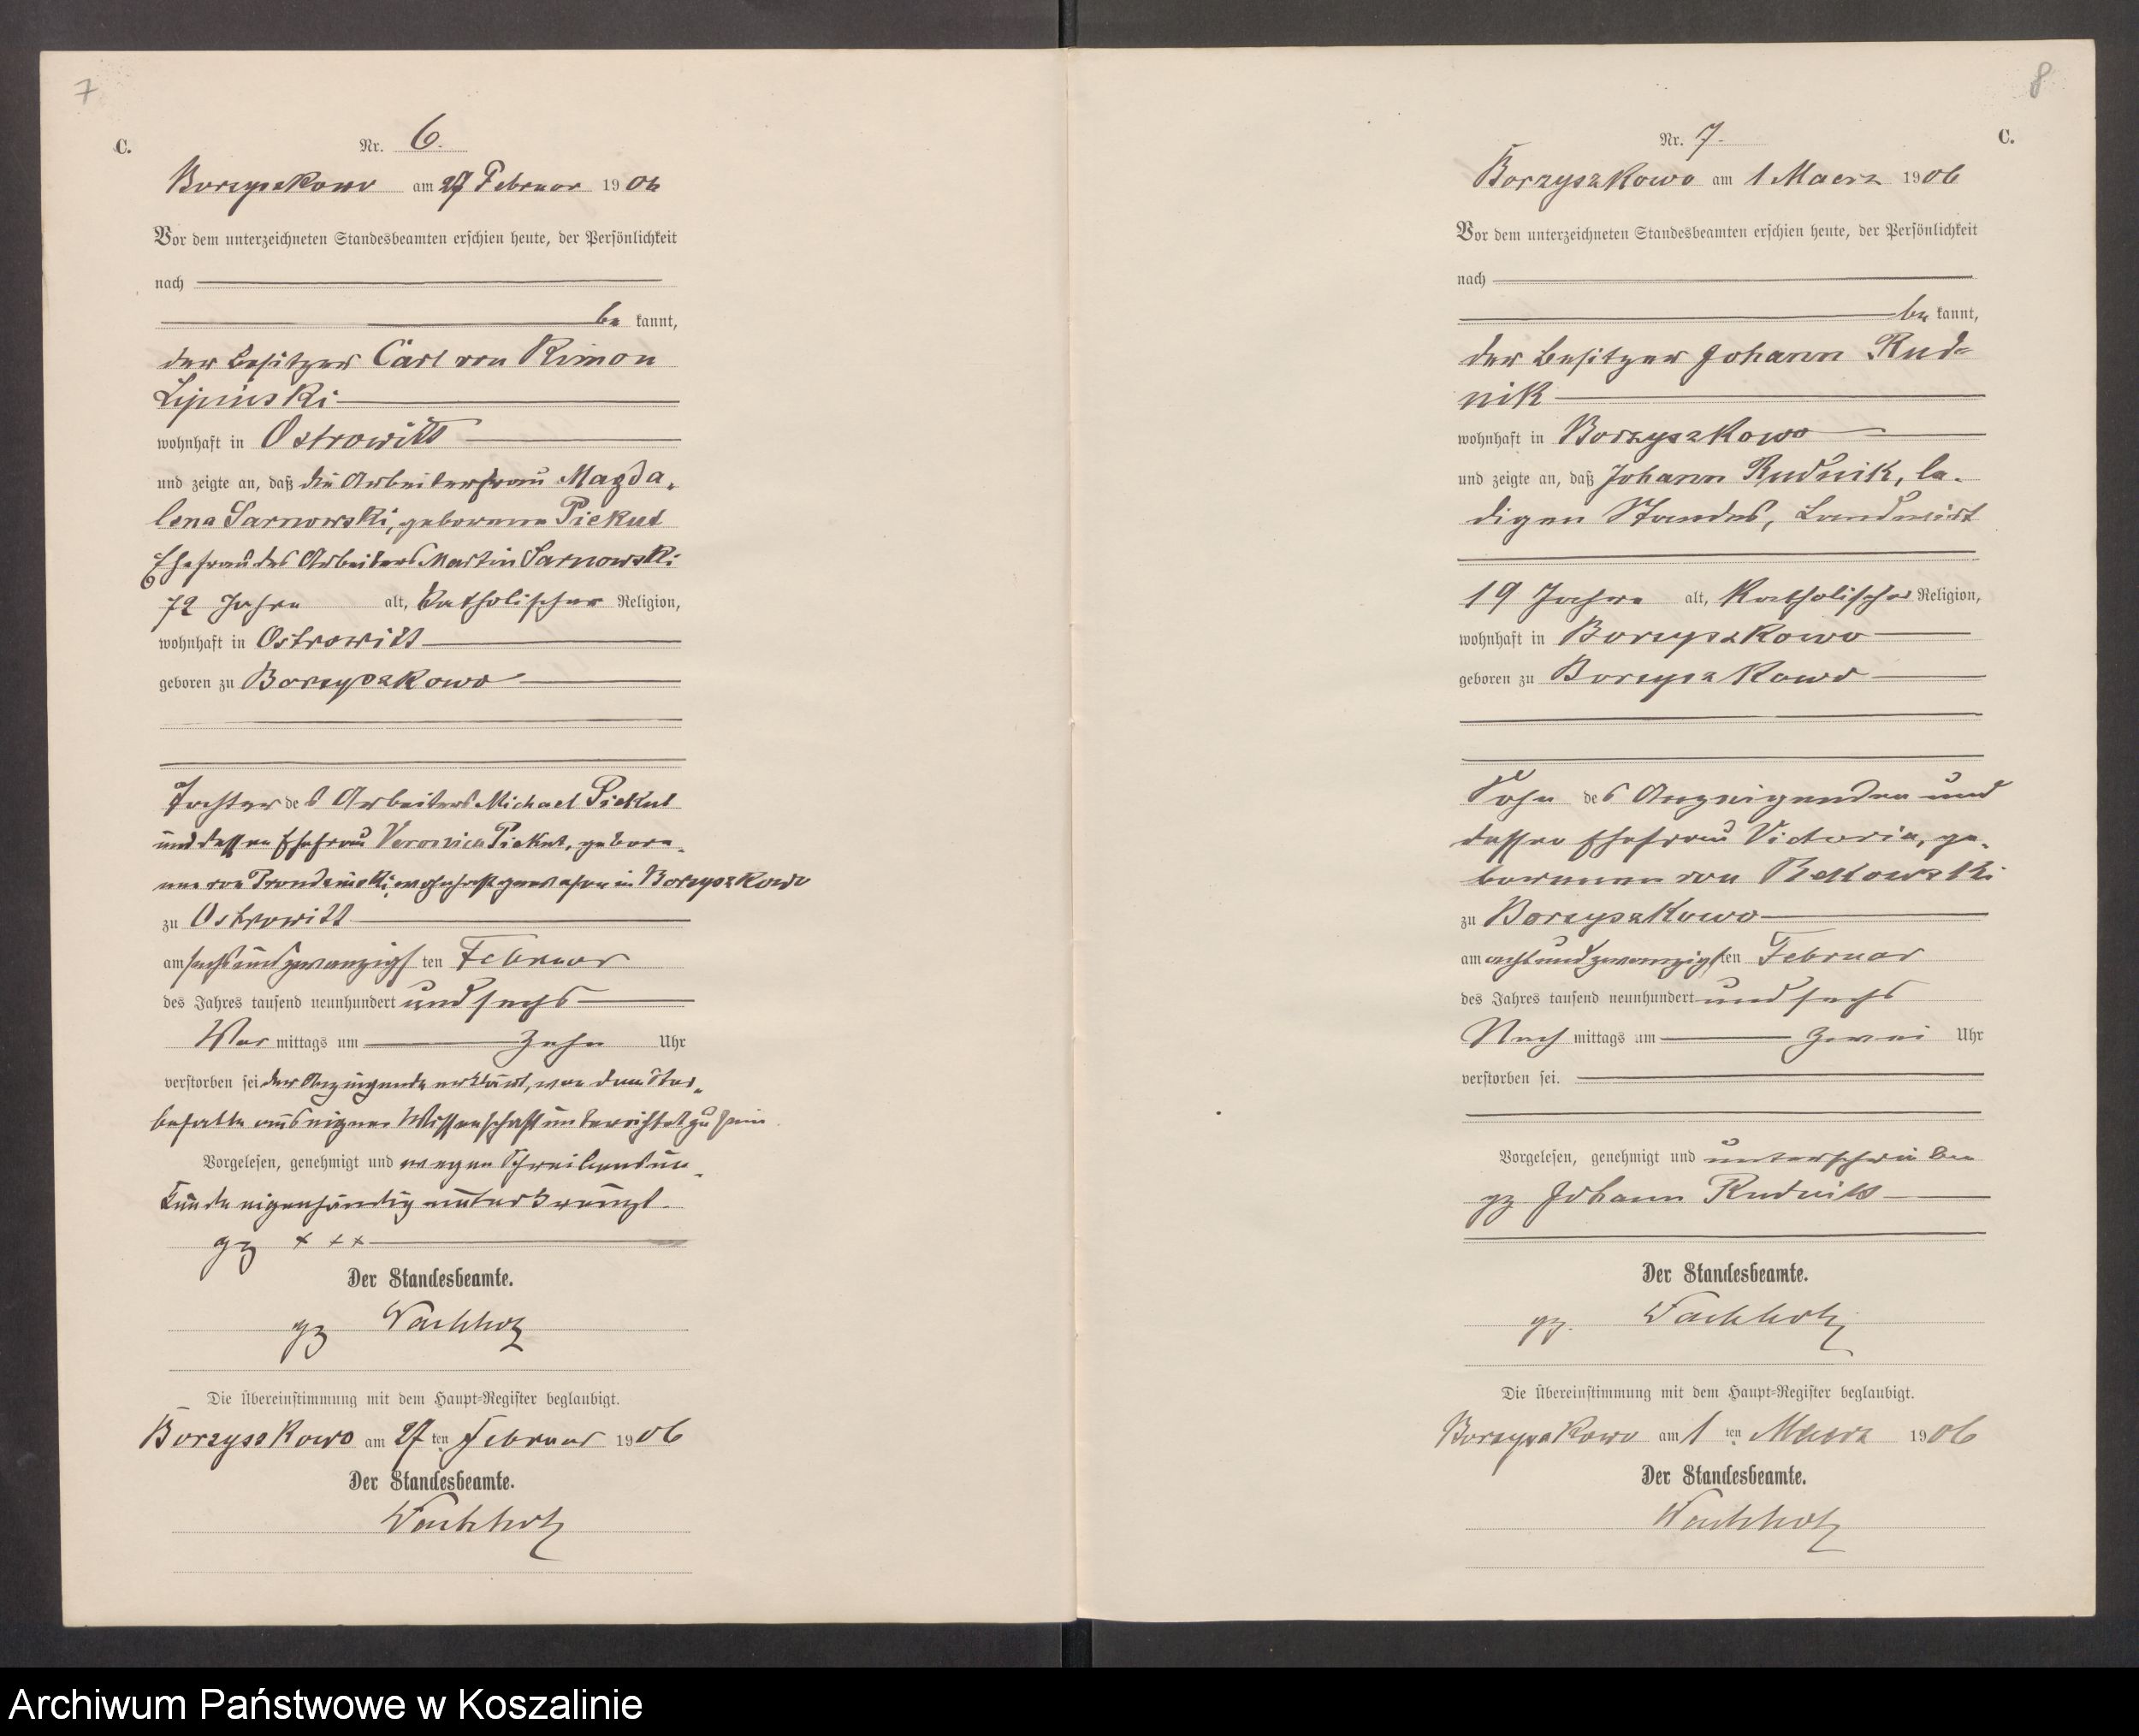 7
C.
Nr. 6.
Borzyszkowo am 27 Februar 1906
Vor dem unterzeichneten Standesbeamten erschien heute, der Persönlichkeit
nach
be kannt,
der Besitzer Carl von Rimon
Lipinski
wohnhaft in Ostrowitt
und zeigte an, daß die Arbeiterfrau Magda-
lena Sarnowski, geborene Piekut
Ehefrau des Arbeiters Martin Sarnowski
72 Jahre alt, katholischer Religion,
wohnhaft in Ostrowitt
geboren zu Borzyszkowo
Tochter des Arbeiters Michael Piekut
und dessen Ehefrau Veronica Piekut, gebore-
nen von wohnhaft gewesen in Borzyszkowo
zu Ostrowitt
am sechsundzwanzigsten Februar
des Jahres tausend neunhundert und sechs
Vor mittags um zehn Uhr
verstorben sei der Anzeigende erklärt, von dem Ster-
befalle aus eigener Wissenschaft unterrichtet zu sein
Vorgelesen, genehmigt und wegen Schreibensun-
kunde eigenhändig unterkreuzt.
gz + + +
Der Standesbeamte.
gz Wachholz
Die Übereinstimmung mit dem Haupt-Register beglaubigt.
Borzyszkowo am 27 ten Februar 1906
Der Standesbeamte.
Wachholz
8
C.
Nr. 7.
Borzyszkowo am 1 Maerz 1906
Vor dem unterzeichneten Standesbeamten erschien heute, der Persönlichkeit
nach
be kannt,
der Besitzer Johann Rud-
nik
wohnhaft in Borzyszkowo
und zeigte an, daß Johann Rudnik, le-
digen Standes, Landwirt
19 Jahre alt, katholischer Religion,
wohnhaft in Borzyszkowo
geboren zu Borzyszkowo
Sohn des Anzeigenden und
dessen Ehefrau Victoria, ge-
borenen von Rekowski
zu Borzyszkowo
am achtundzwanzigsten Februar
des Jahres tausend neunhundert und sechs
Nach mittags um zwei Uhr
verstorben sei.
Vorgelesen, genehmigt und unterschrieben
gz Johann Rudnik
Der Standesbeamte.
gz. Wachholz
Die Übereinstimmung mit dem Haupt-Register beglaubigt.
Borzyszkowo am 1 ten Maerz 1906
Der Standesbeamte.
Wachholz
Archiwum Państwowe w Koszalinie